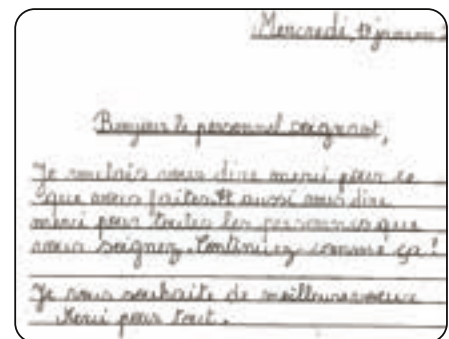 Mercredi, 13 janvier
Bonjour le personnel soignant,
Je voulais vous dire merci pour ce
que vous faites et aussi vous dire
merci pour toutes les personnes que
vous soignez. Continuez comme ça !
Je vous souhaite de meilleurs voeux
Merci pour tout.